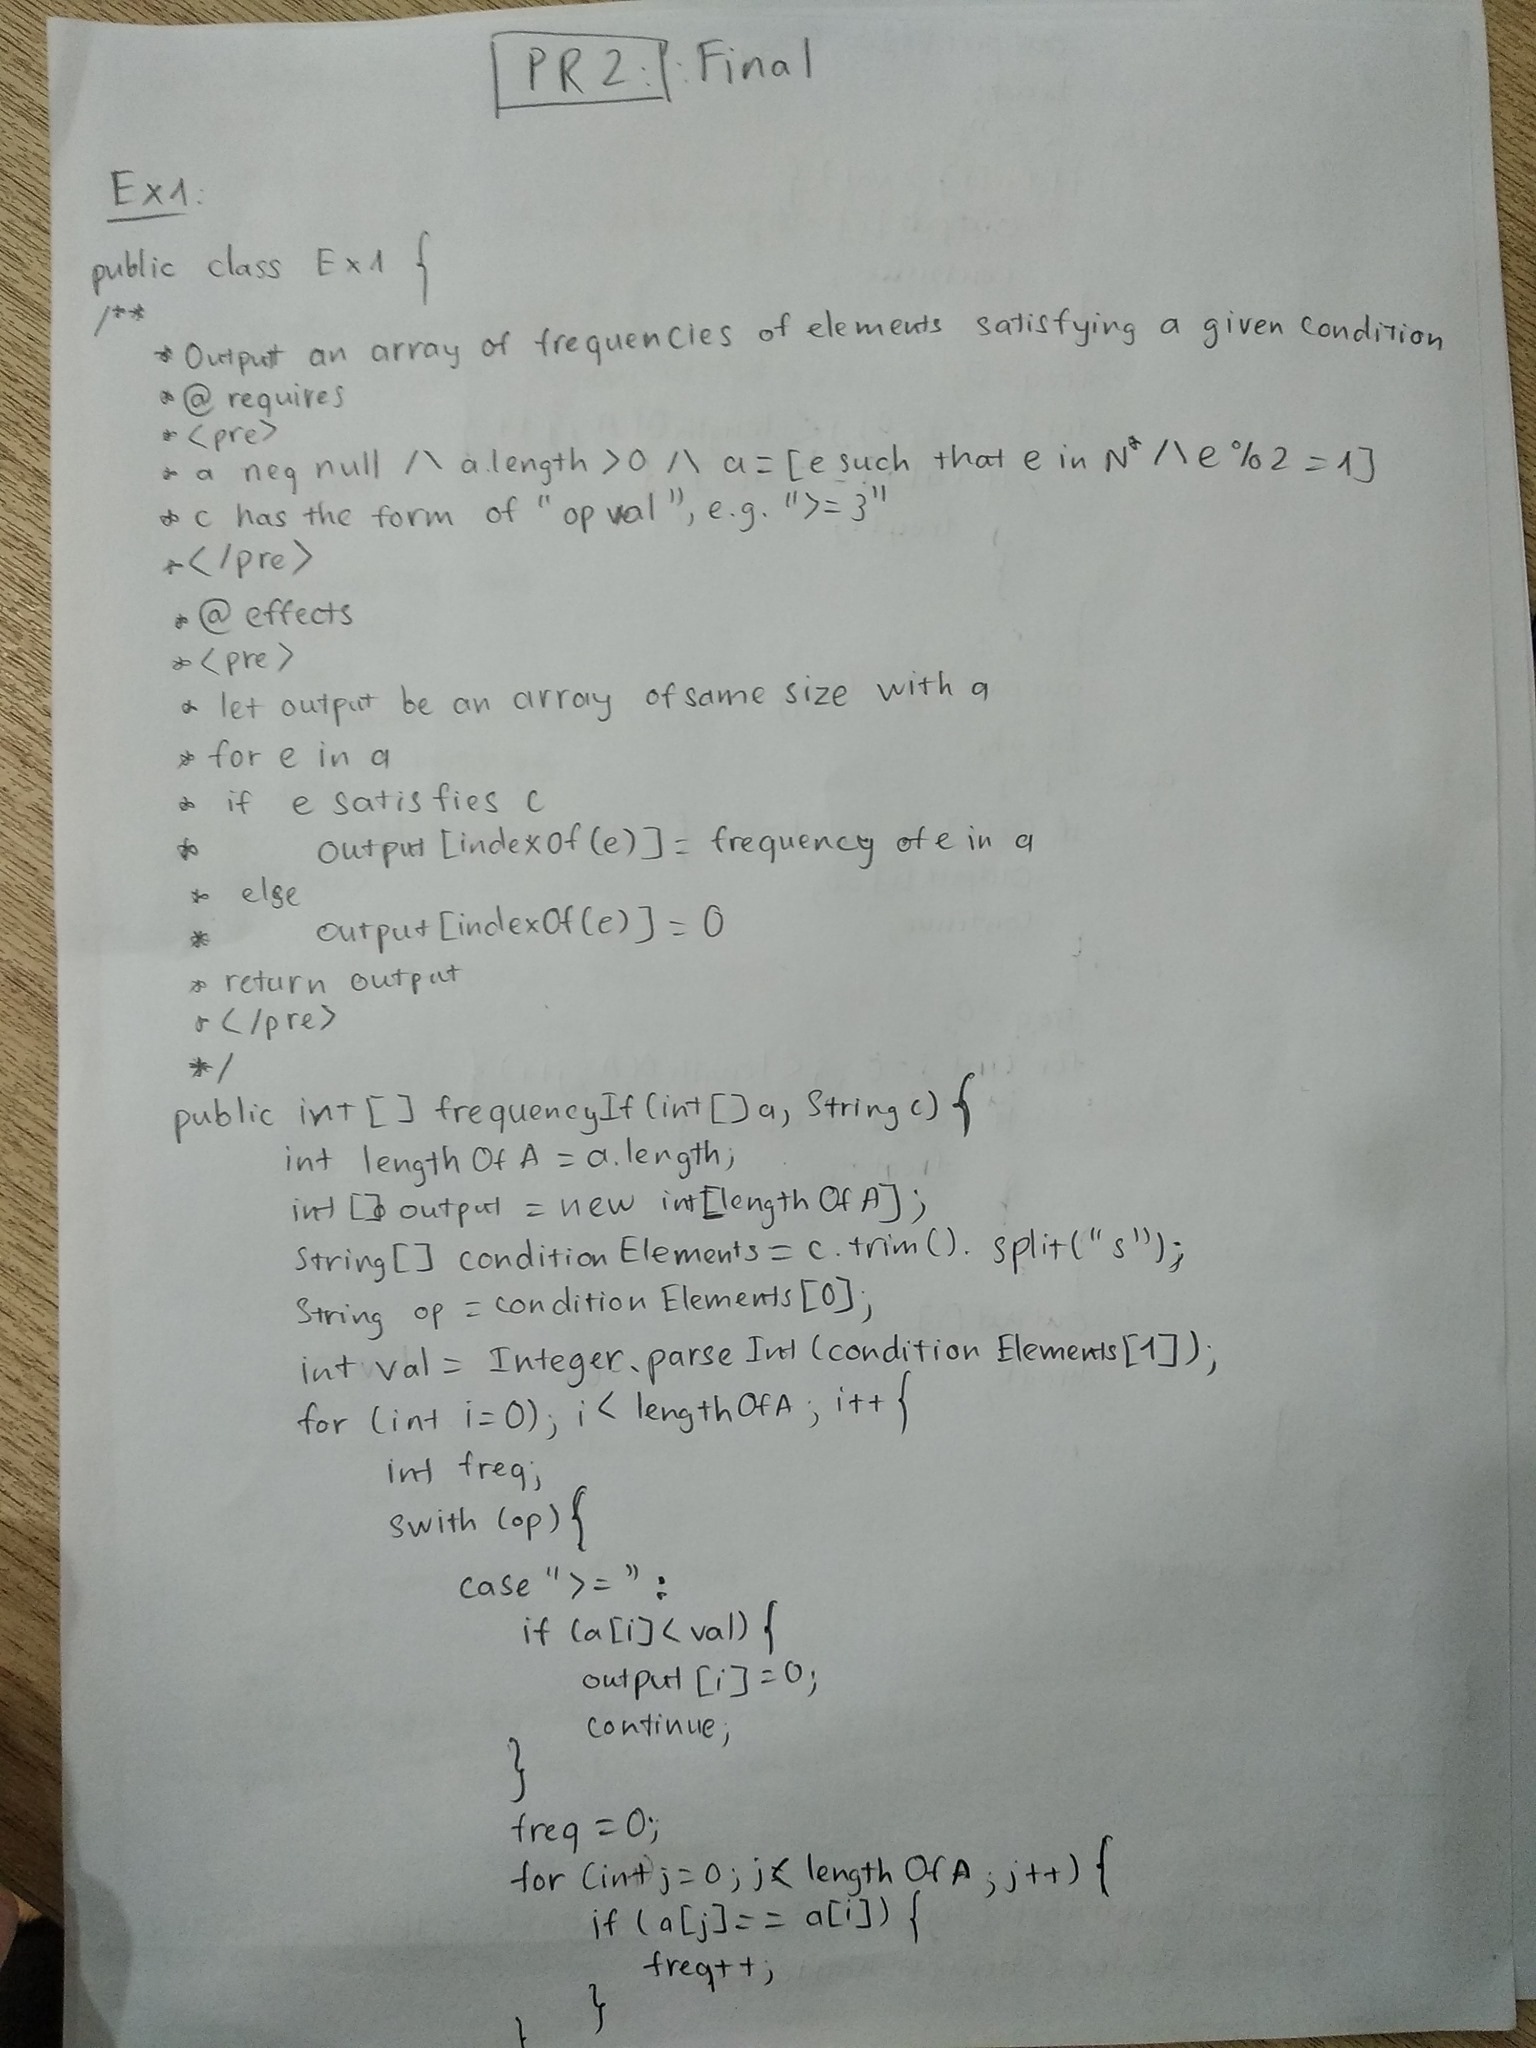 PR2: Final
Ex1:
public class Ex1 {
/**
* Output an array of frequencies of elements satisfying a given condition
* @ requires
* <pre>
* a neq null /\ a.length >0 /\ a = [e such that e in N* /\ e % 2 = 1]
* c has the form of "op val", e.g. ">= 3"
* </pre>
* @ effects
* <pre>
* let output be an array of same size with a
* for e in a
* if e satisfies c
* output [indexOf(e)] = frequency of e in a
* else
* output [indexOf(e)] = 0
* return output
* </pre>
*/
public int [] frequencyIf (int [] a, String c) {
int lengthOfA = a.length;
int [] output = new int[lengthOfA];
String [] conditionElements = c.trim(). split("s");
String op = conditionElements [0];
int val = Integer.parseInt (conditionElements [1]);
for (int i=0); i < lengthOfA; i++ {
int freq;
swith (op) {
case ">=" :
if (a[i] < val) {
output [i] = 0;
continue;
}
freq = 0;
for (int j=0; j< lengthOfA; j++) {
if (a[j] == a[i]) {
freq++;
}
}